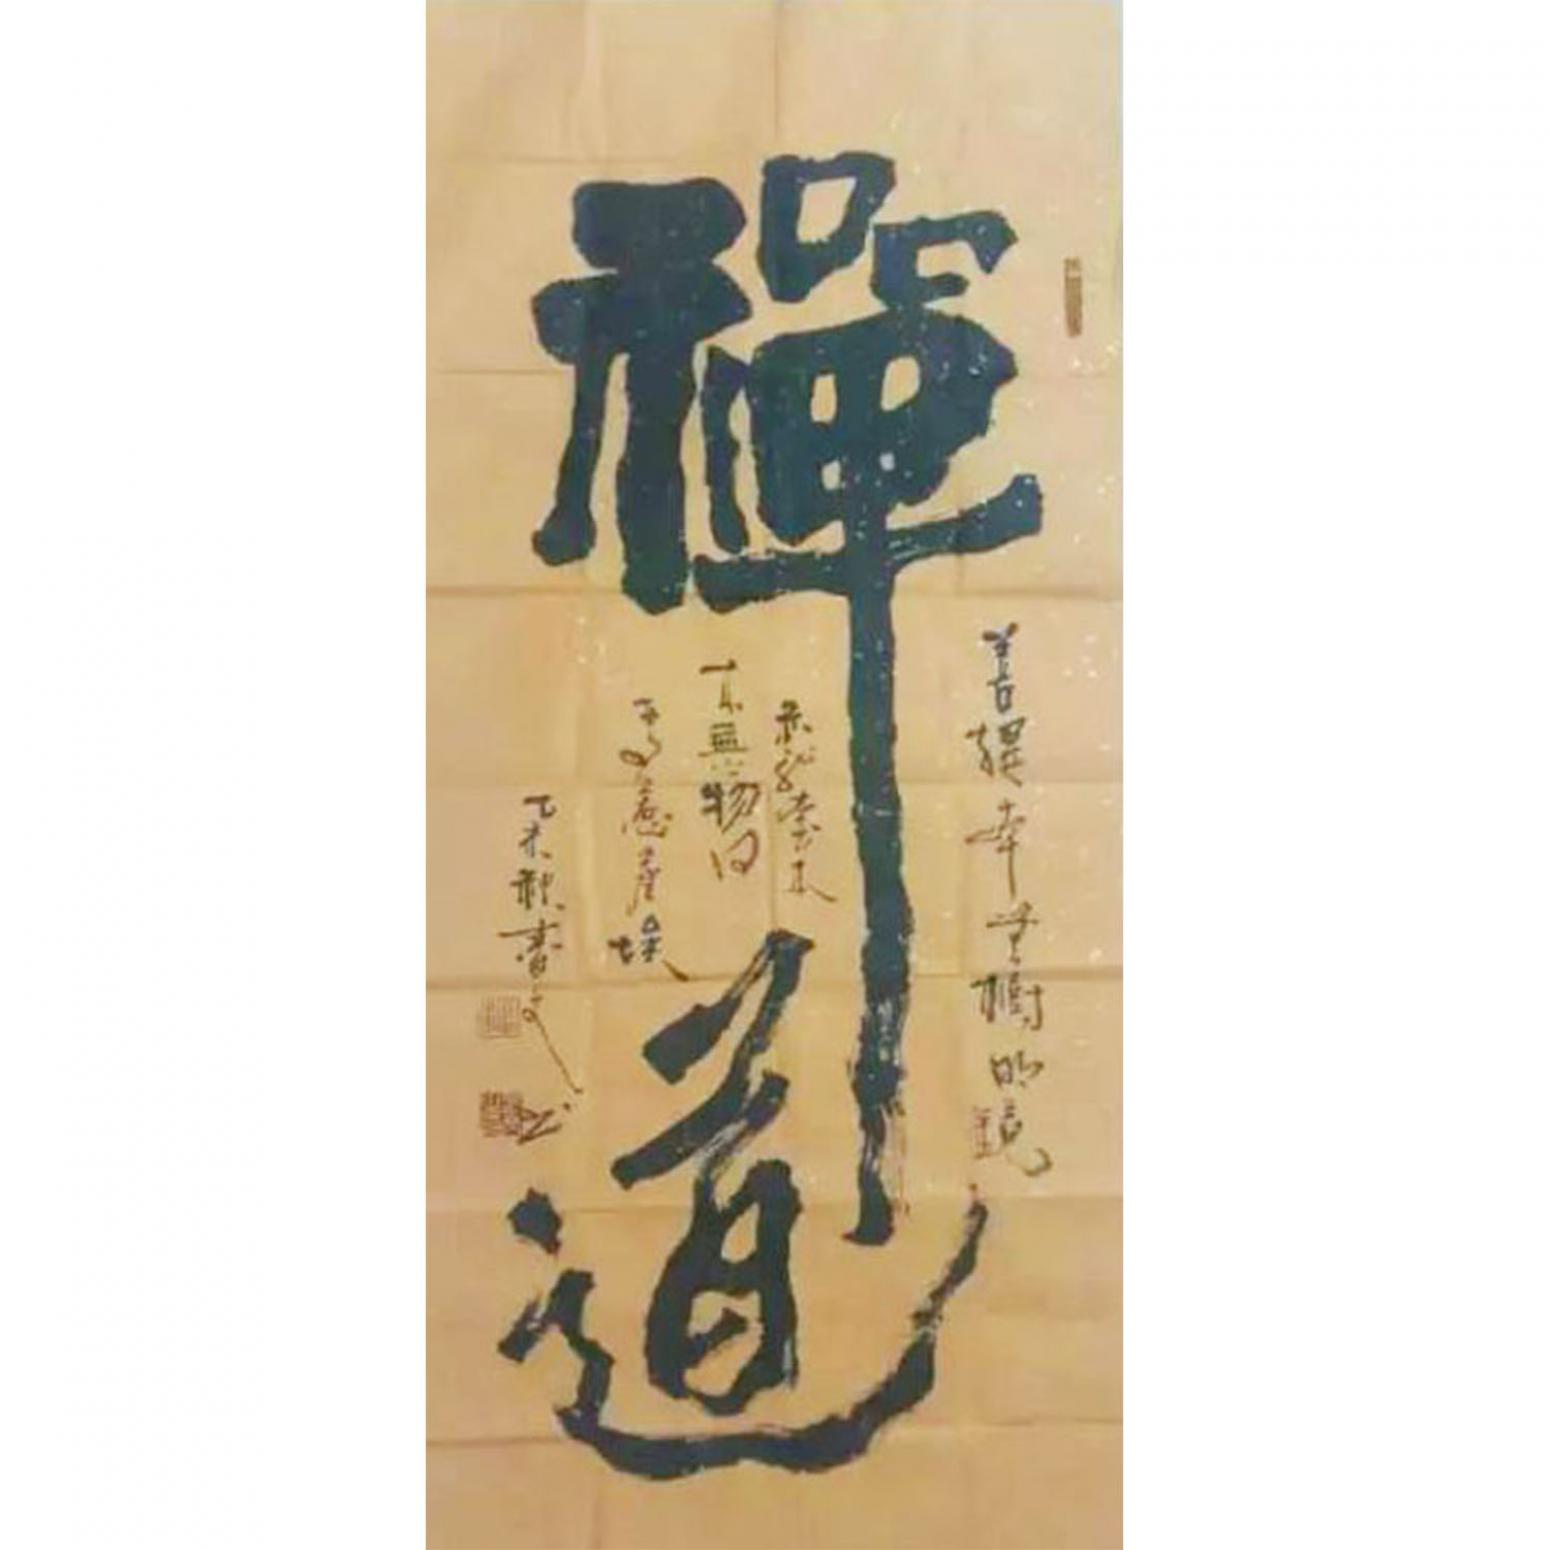 禪道
菩提本無樹明鏡
亦非臺本
来無一物何
處惹塵埃
乙未秋書